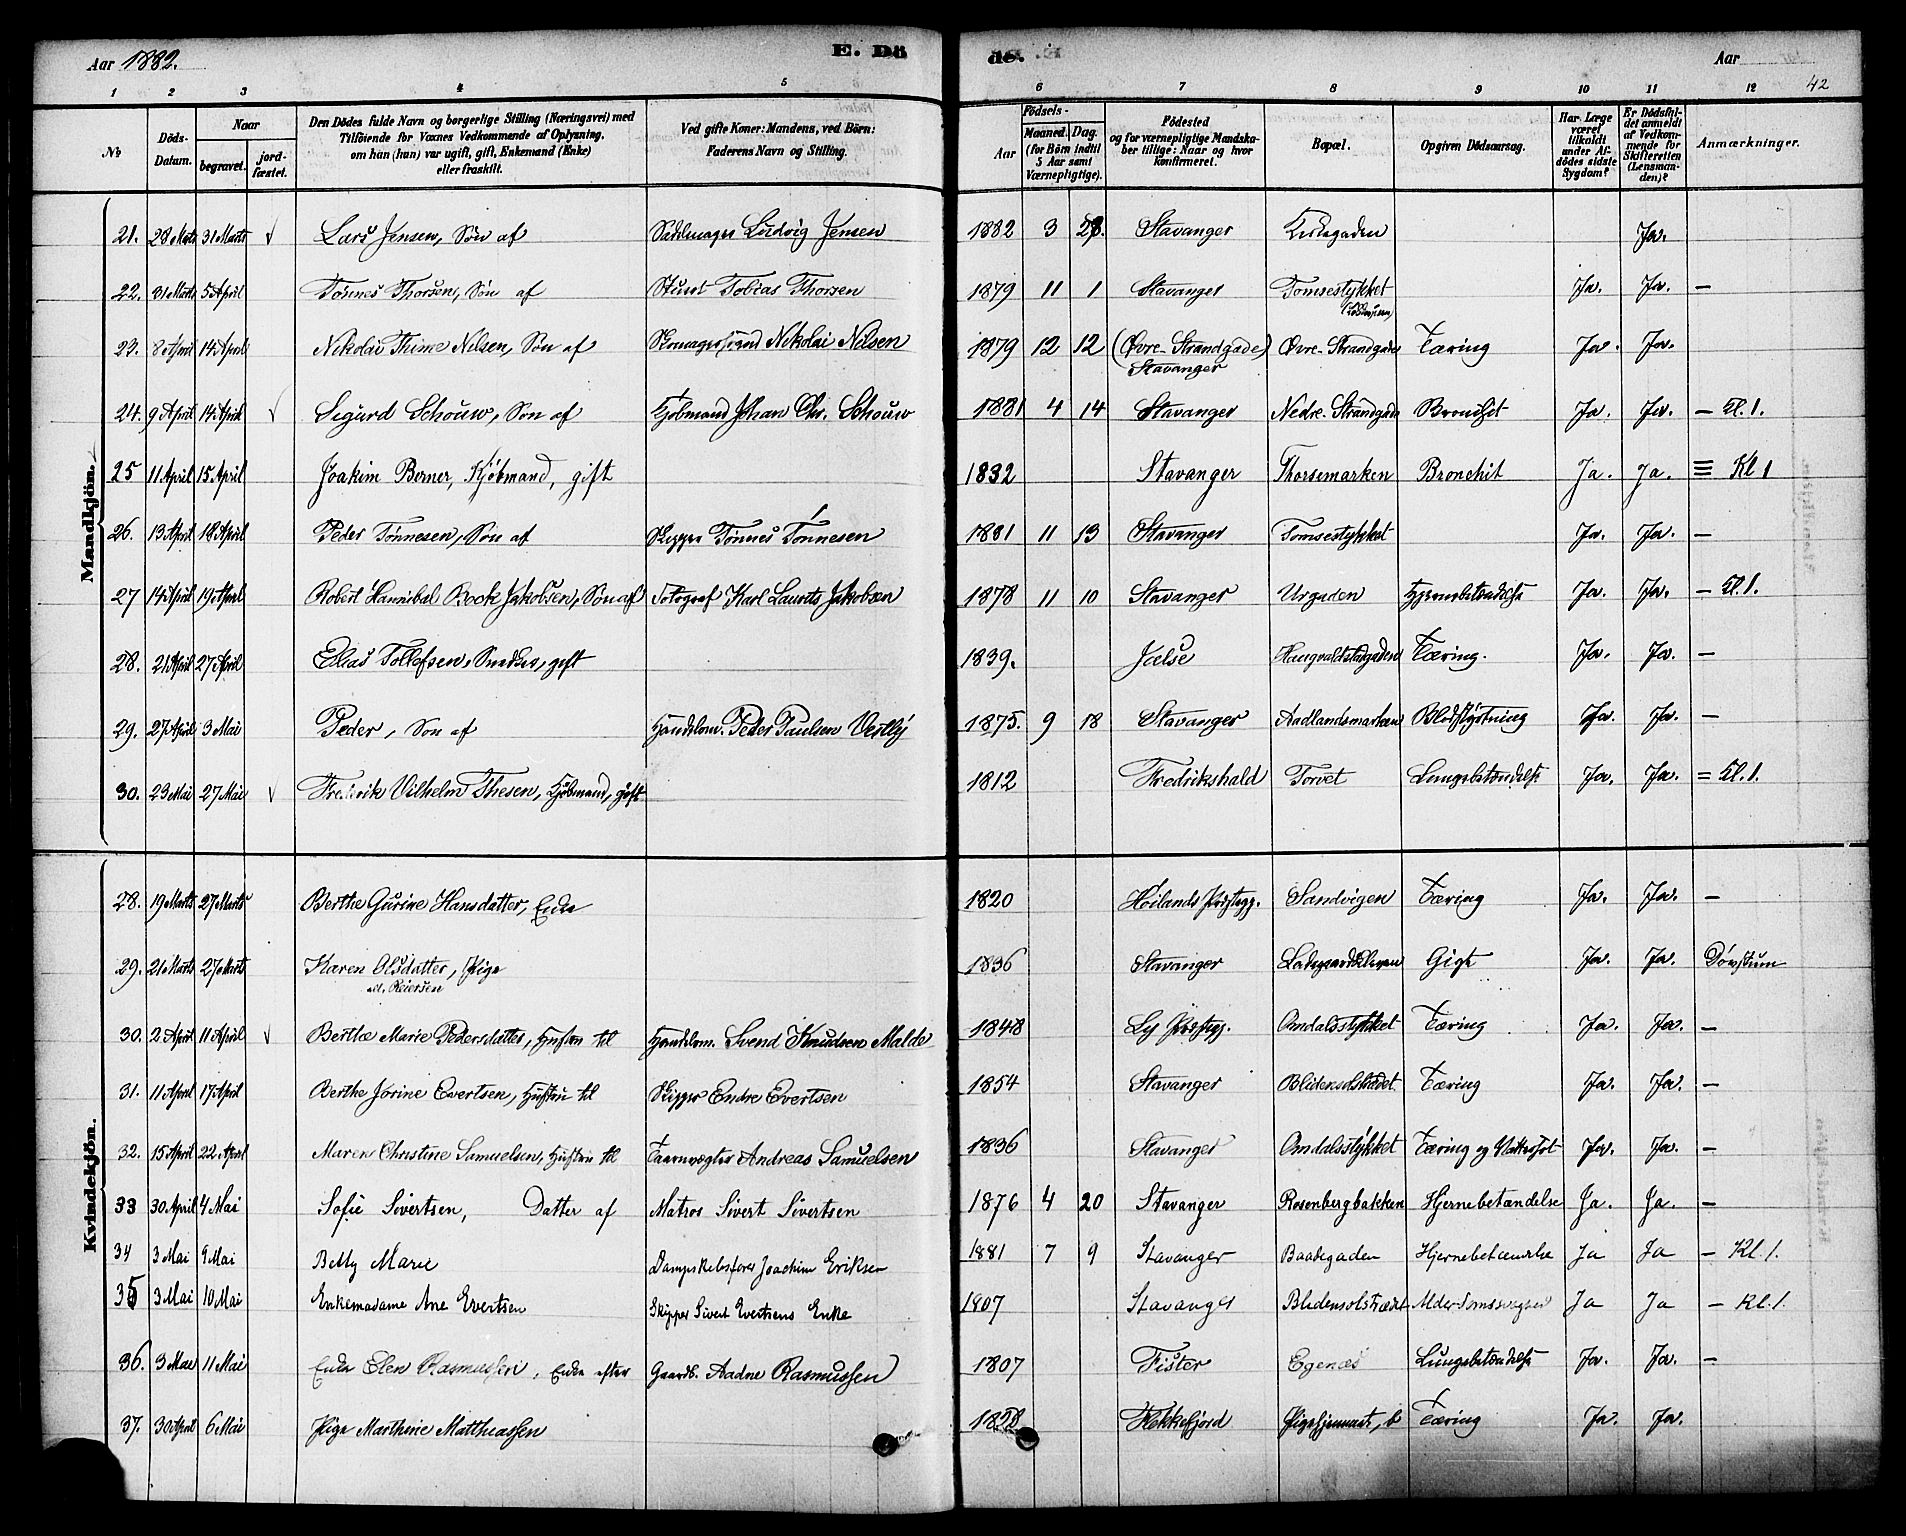 Aar 1882.
E. Dö
de.
Aar
42
1 2 3 4 5 6 7 8 9 10 11 12
No
Döds-Datum.
Naar
begravet.
jord-fæstet.
Den Dödes fulde Navn og borgerlige Stilling (Næringsvei) med Tilföiende for Voxnes Vedkommende af Oplysning, om hün (han) var ugift, gift, Enkemand (Enke) eller fraskilt.
Ved gifte Koner: Mandens, ved Börn: Faderens Navn og Stilling.
Födsels-
Aar
Maaned. Dag.
(for Börn indtil 5 Aar samt Værnepligtige).
Födested og for værnepligtige Mandskaber tillige: Naar og hvor konfirmeret.
Bopæl.
Opgiven Dödsaarsag.
Har Læge været tilkaldt under Afdödes sidste Sygdom?
Er Dödsfaldet anmeldt af Vedkommende for Skifteretten (Lensmanden)?
Anmærkninger.
Mandkjön.
21. 28 Marts 31 Marts √ Lars Jensen, Søn af Sadelmager Ludvig Jensen 1882 3 28. Stavanger Kirkegaden Ja.
22. 31 Marts 5 April Tønnes Thorsen, Søn af Tobias Thorsen 1879 11 1 Stavanger Tomsestykket Ja. Ja. —
23. 8 April 14 April Nikolai Thime Nilsen, Søn af Skomagersvend Nikolai Nilsen 1879 12 12 (Øvre Strandgade) Stavanger Øvre Strandgade Tæring Ja. Ja.
24. 9 April 14 April √ Sigurd Schouw, Søn af Kjøbmand Johan Chr. Schouw 1881 4 14 Stavanger Nedre Strandgade Bronchit Ja. Ja. — Kl. 1.
25 11 April 15 April Joakim Berner, Kjøbmand, gift 1832 Stavanger Thorsemarken Bronchit Ja. Ja. Kl 1
26. 13 April 18 April Peder Tønnesen, Søn af Skipper Tønnes Tønnesen 1881 11 13 Stavanger Tomsestykket Ja. Ja. —
27 14 April 19 April Robert Hannibal Bock Jakobsen, Søn af Fotograf Karl Laurits Jakobsen 1878 11 10 Stavanger Urgaden Hjernebetændelse Ja. Ja. — Kl. 1.
28. 21 April 27 April Elias Tollefsen, Snedker, gift 1839. Jælse Haugvaldstadgaden Tæring. Ja. Ja. —
29. 27 April 3 Mai Peder, Søn af Handelsm. Peder Paulsen Vestly 1875. 9 18 Stavanger Aadlandsmarken Blodstyrtning Ja. Ja. —
30. 23 Mai 27 Mai √ Fredrik Vilhelm Thesen, Kjøbmand, gift 1812 Fredrikshald Torvet Lungebetændelse Ja. Ja. = Kl. 1.
Kvindekjön.
28. 19 Marts 27 Marts Berthe Gurine Hansdatter, Enke 1820 Høilands Præstegj. Sandvigen Tæring Ja. Ja. —
29. 21 Marts 27 Marts Karen Olsdatter, Pige 1836 Stavanger Gigt Ja. Ja. Døvstum
ell. Reiersen
30. 2 April 11 April √ Berthe Marie Pedersdatter, Hustru til Handelsm. Svend Knudsen Malde 1848 Ly Præstegj. Omdalsstykket Tæring Ja. Ja. —
31. 11 April 17 April Berthe Jorine Evertsen, Hustru til Skipper Endre Evertsen 1854 Stavanger Blidensolstrædet Tæring Ja. Ja. —
32. 15 April 22 April Maren Christine Samuelsen, Hustru til Taarnvægter Andreas Samuelsen 1836 Stavanger Omdalsstykket Tæring og Vattersot Ja. Ja. —
33 30 April 4 Mai Sofie Sivertsen, Datter af Matros Sivert Sivertsen 1876 4 20 Stavanger Rosenbergbakken Hjernebetændelse Ja. Ja. —
34 3 Mai 9 Mai Betty Marie Dampskibsfører Joachim Eriksen 1881 7 9 Stavanger Baadegaden Hjernebetændelse Ja Ja — Kl. 1.
35 3 Mai 10 Mai Enkemadame Ane Evertsen Skipper Sivert Evertsens Enke 1807 Stavanger Blidensolstrædet Alderdomssvaghed Ja Ja — Kl. 1.
36. 3 Mai 11 Mai Enke Elen Rasmussen, Enke efter Gaardb. Aadne Rasmussen 1807 Fister Egenæs Lungebetændelse Ja. Ja. —
37. 30 April 6 Mai Pige Marthine Matthiassen 1828 Flekkefjord Tæring Ja. Ja.